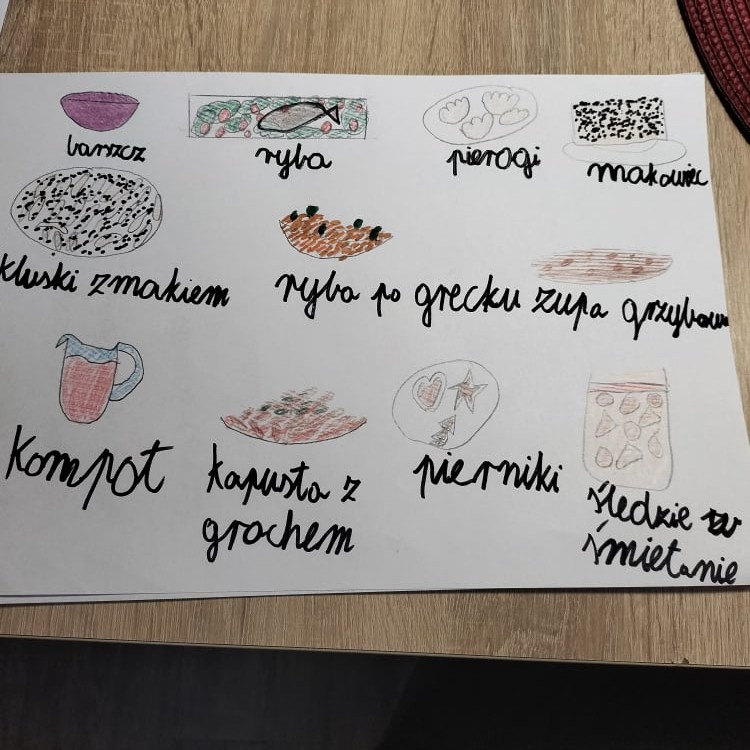 barszcz ryba pierogi makowiec
kluski z makiem ryba po grecku zupa grzybowa
kompot kapusta z pierniki śledzie w
grochem śmietanie